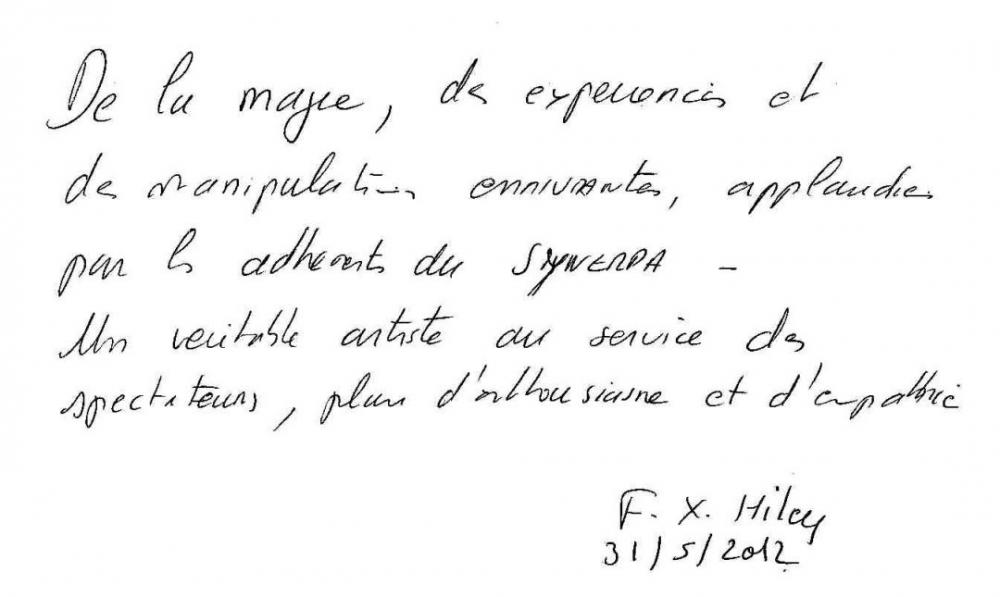 De la magie, des experiences et
des manipulations ennivrantes, applaudies
par les adherents du SYNERPA -
Un veritable artiste au service des
spectateurs, plein d'enthousiasme et d'empathie
F. X. Hiley
31/5/2012